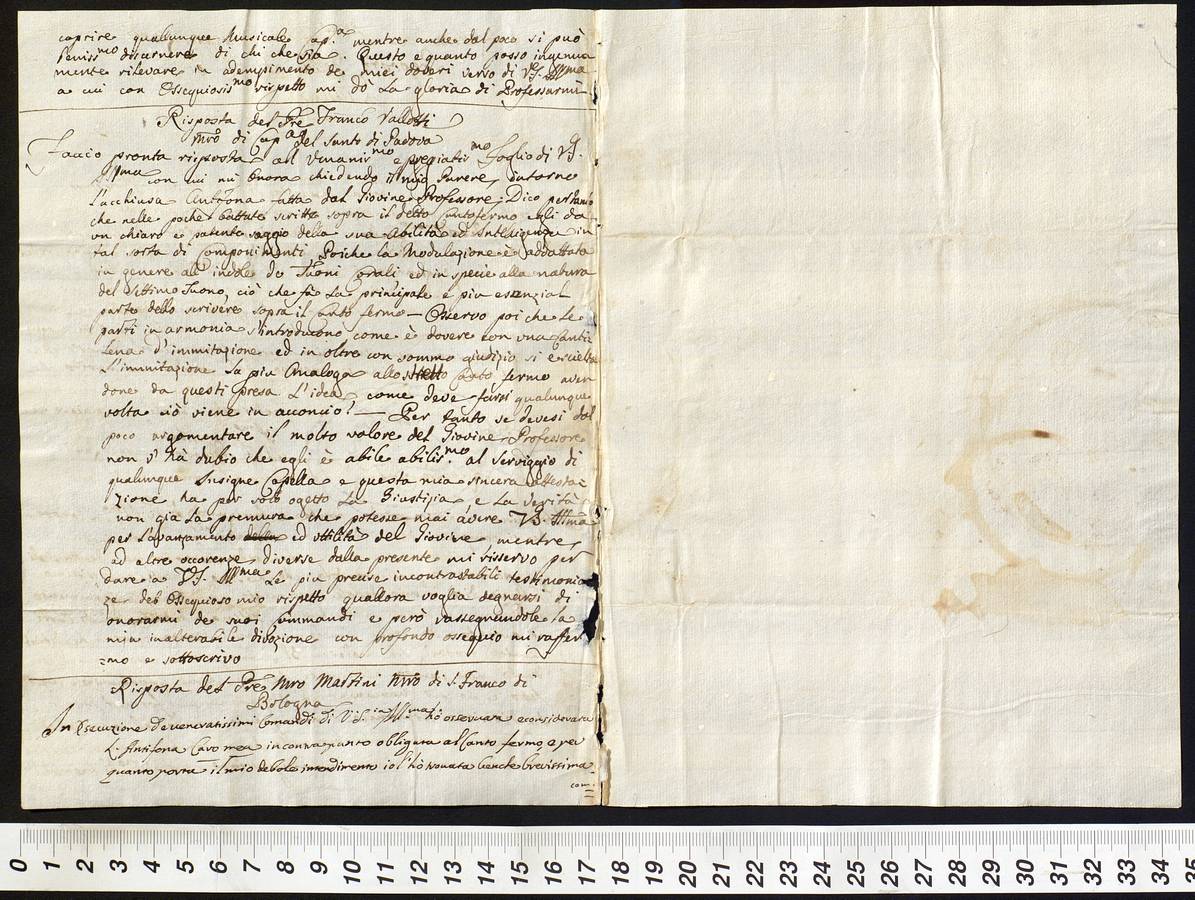 caprire qualunque Musicale Cap.a mentre anche dal poco si può
benissmo discernere di chi che sia. Questo e quanto posso ingenua
mente rilevare in adempimento de miei doveri verso di VS. Illma
a cui con Ossequiosismo rispetto mi dò la gloria di Professarmi
Risposta del Pre Franco Vallotti
Mro di Capa del Santo di Padova
Faccio pronta risposta all Umanismo e pregiatismo Foglio di VS.
Illma con cui mi onora chiedendo il mio Parere, intorno
l'acchiusa Antifona fatta dal Giovine Professore; Dico pertanto
che nelle poche battute scritte sopra il detto Cantofermo egli da
un chiaro e patente saggio della sua Abilità ed Intelligenza in
tal sorta di Componimenti Poiche la Modulazione è addattata
in genere all' indole de Tuoni Corali ed in specie alla natura
del settimo Tuono, ciò che fà la principale e piu esenzial
parte dello scrivere sopra il Canto fermo — Osservo poi che le
parti in armonia s'introducono come è dovere con una Canti
lena d'immitazione ed in oltre con sommo giudizio si è scielta
l'immitazione la piu Analoga allo stretto Canto fermo aven
done da questi presa l'idea, come deve farsi qualunque
volta ciò viene in acconcio! — Per tanto se devesi dal
poco argomentare il molto valore del Giovine Professore
non v'hà dubio che egli è abile abilis.mo al servigio di
qualunque Insigne Capella e questa mia sincera attesta=
zione ha per solo ogetto la Giustizia e la verità
non gia la premura che potesse mai avere VS. Illma
per l'avanzamento della ed utilità del Giovine mentre,
ad altre occorenze, diverse dalla presente mi risservo per
dare a VS. Illma le piu precise incontrastabili testimonian
ze del Ossequioso mio rispetto quallora voglia degnarsi di
onorarmi de suoi Commandi e però rassegnandole la
mia inalterabile divozione con profondo ossequio mi raffer
=mo e sottoscrivo
Risposta del Pre Mro Martini Mro di S. Franco di
Bologna
In Esecuzione de veneratissimi Comandi di V.S. Illma hò osservata e considerata
L'Antifona Cavo mea in contrapunto obligata al Canto fermo, e per
quanto porta il mio debole intendimento io l'hò trovata benche brevissima
com=